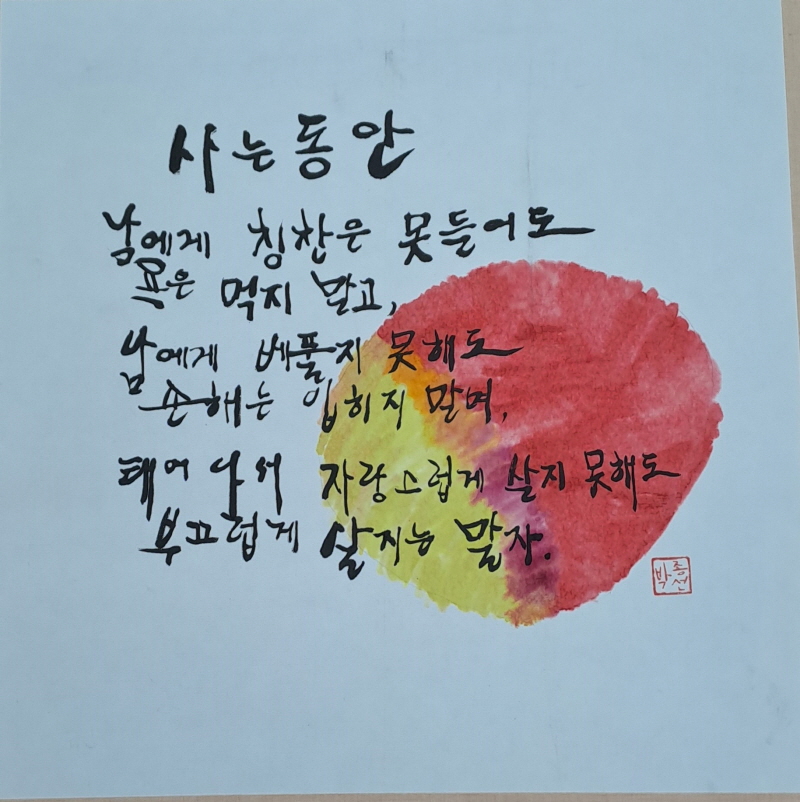 사는동안
남에게 칭찬은 못들어도
욕은 먹지 말고,
남에게 베풀지 못해도
손해는 입히지 말며,
태어나서 자랑스럽게 살지 못해도
부끄럽게 살지는 말자.
박종선